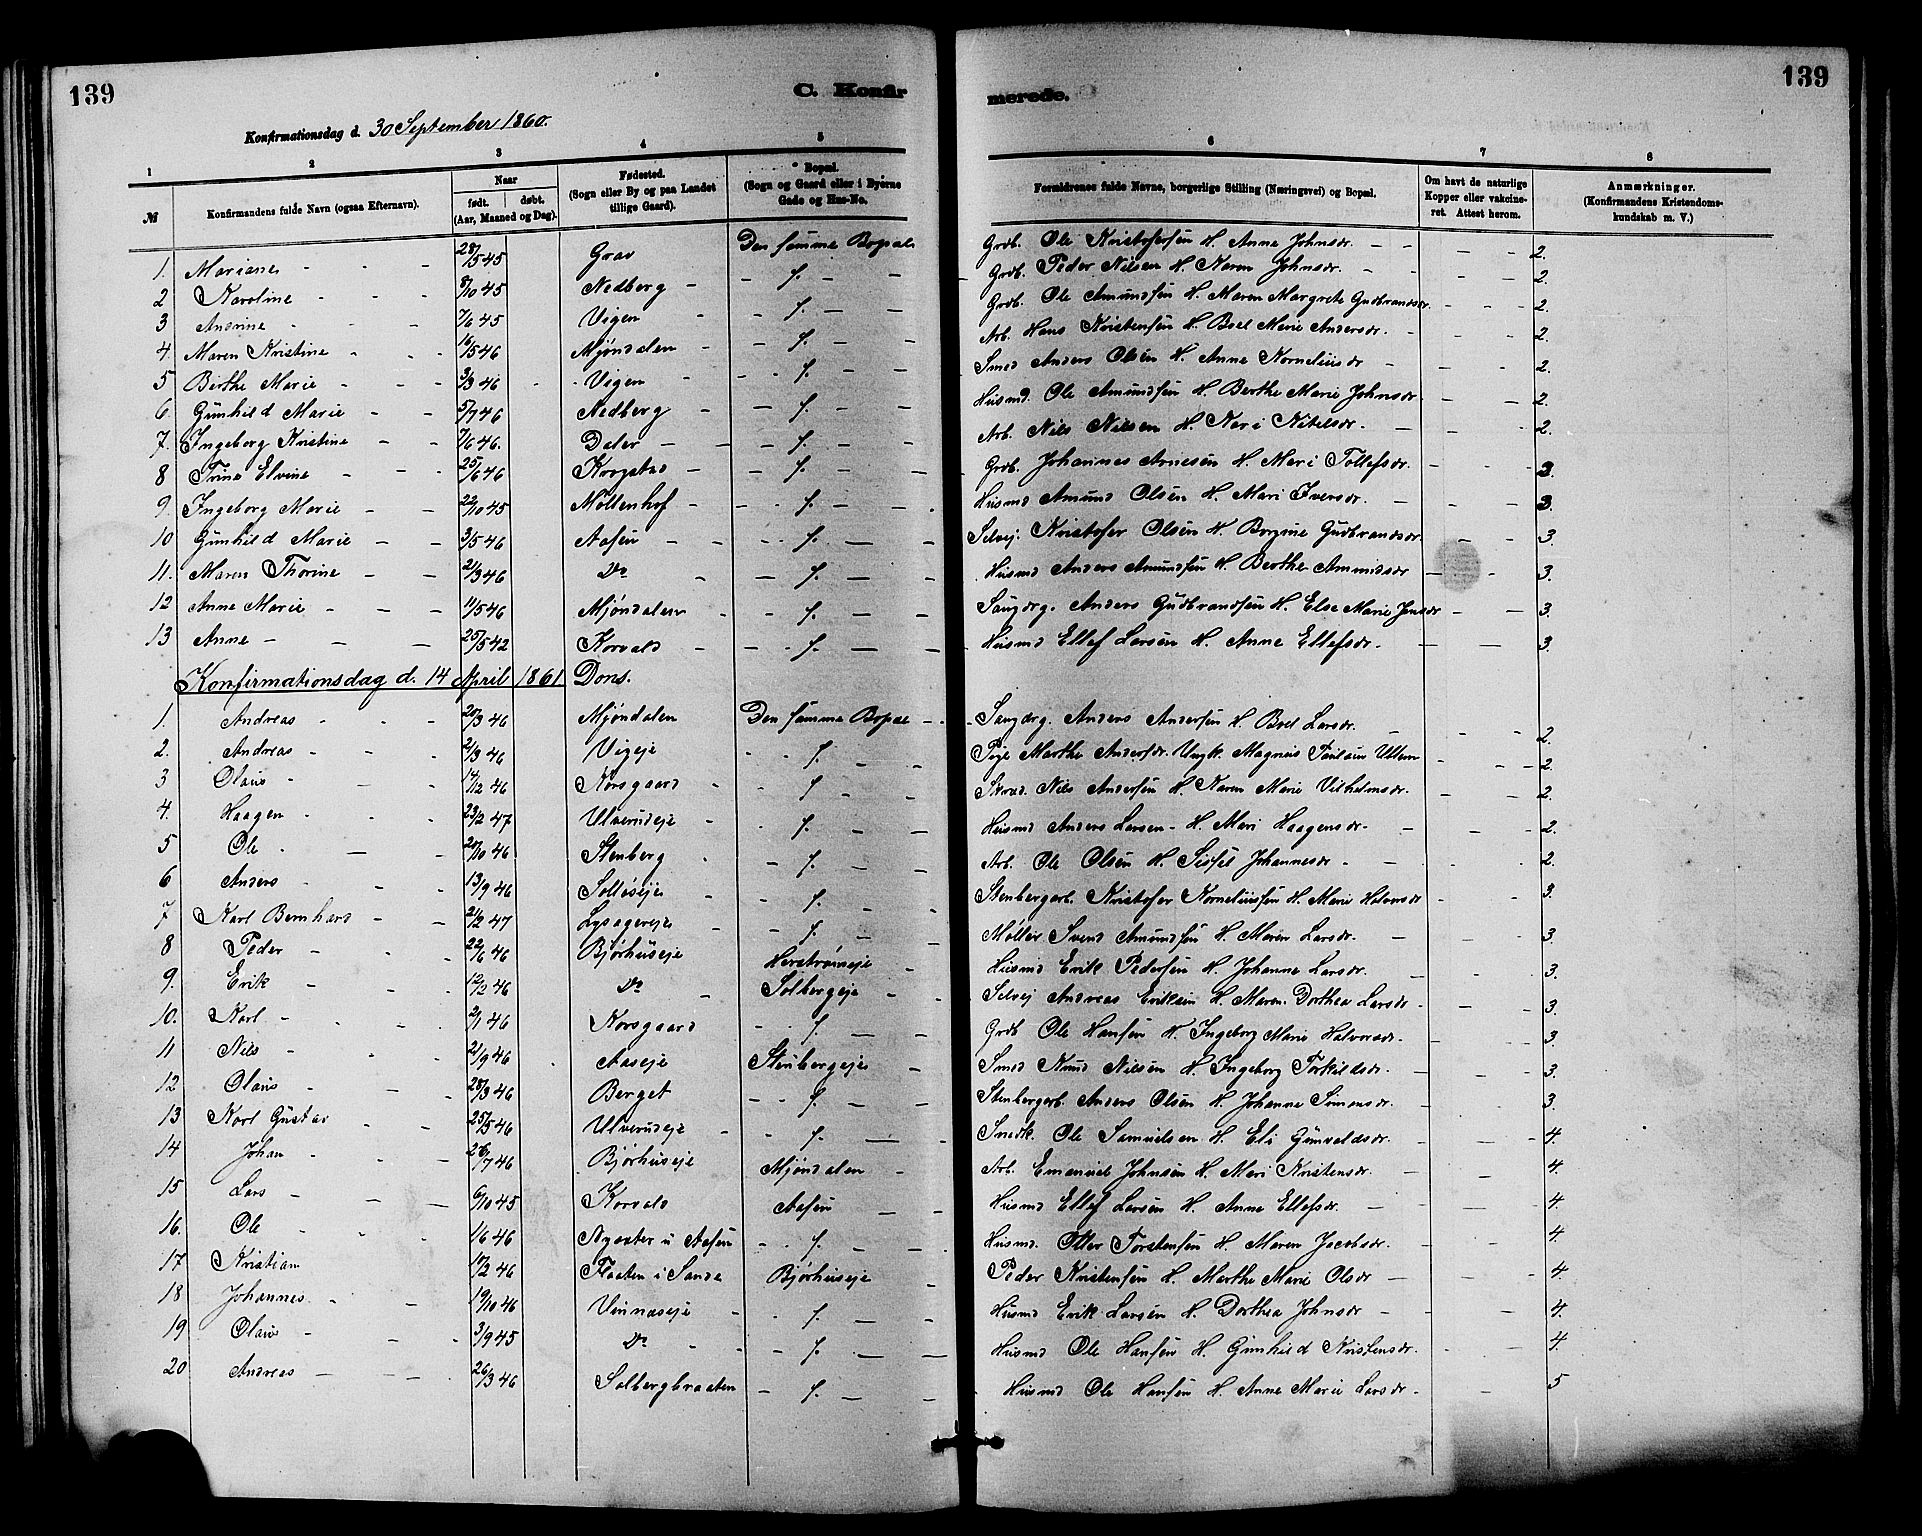 139
C. Konfir
merede.
139
Konfirmationsdag d. 30 September 1860.
1 2 3 4 5 6 7 8
№ Konfirmandens fulde Navn (ogsaa Efternavn). Naar født. døbt. (Aar, Maaned og Dag). Fødested. (Sogn eller By og paa Landet tillige Gaard). Bopæl. (Sogn og Gaard eller i Byerne Gade og Hus-No. Forældrenes fulde Navne, borgerlige Stilling (Næringsvei) og Bopæl. Om havt de naturlige Kopper eller vakcineret. Attest herom. Anmærkninger. (Konfirmandens Kristendomskundskab m. V.)
1. Mariane - - - 28/5 45 Grav Den samme Bopæl Grdb. Ole Kristofersen H. Anne Johnsdr. - - - - 2.
2 Karoline - - - 8/10 45 Nedberg - - f. - - Grdb. Peder Nilsen H. Karen Johnsdr. - - - - 2.
3 Andrine - - - 7/6 45 Vigen - - f. - - Grdb. Ole Amundsen H. Maren Margrete Gudbrandsdr. - - 2.
4. Maren Kristine - - - 16/5 46 Mjøndalen - - f. - - Arb. Hans Kristensen H. Boel Marie Andersdr. - - - 2.
5 Birthe Marie - - - 3/3 46 Vigen - - f. - - Smed Anders Olsen H. Anne Korneliusdr - - - 2.
6. Gunhild Marie - - 5/7 46 Nedberg - - f. - - Husmd. Ole Amundsen H. Berthe Marie Johnsdr - - 2.
7. Ingeborg Kristine - - 7/6 46. Daler - - - f. - - Arb. Nils Nilsen H. Kari Nilsdr. - - - 2.
8 Trine Elvine - - - 25/6 46 Krogstad - - f. - - Grdb. Johannes Arnesen H. Mari Tollefsdr. - - - 3.
9. Ingeborg Marie - - 22/10 45 Møllenhof - - f. - - Husmd Amund Olsen H. Mari Iversdr. - - - 3.
10 Gunhild Marie - - 3/5 46 Aasen - - - f. - - Selvej. Kristofer Olsen H. Borgine Gudbrandsdr. - - 3.
11. Maren Thorine - - 21/3 46 Do - - f. - - Husmd Anders Amundsen H. Berthe Amundsdr - - 3.
12 Anne Marie - - - 11/5 46 Mjøndalen - - f. - - Saugdrg. Anders Gudbrandsen H. Else Marie Jensdr - - 3.
13 Anne - - - 25/5 42 Korvald - - f. - - Husmd Ellef Larsen H. Anne Ellefsdr. - - - 3.
Konfirmationsdag d. 14 April 1861 Dons.
1. Andreas - - - 20/3 46 Mjøndalen Den samme Bopæl - - Saugdrg. Anders Andersen H. Boel Larsdr. - - - 2.
2. Andreas - - - 21/3 46 Vigeje - f. - - Pige Marthe Andersdr. Ungk. Magnus Paulsen Ullern - - 2.
3 Olaus - - - 14/12 46 Korsgaard - - f. - - Skræd. Nils Andersen H. Karen Marie Vilhelmsdr. - - 2.
4. Haagen - - - 23/2 47 Ulverudeje - - f. - - Husmd Anders Larsen - H. Mari Haagensdr - - - 2.
5 Ole - - - 20/10 46 Stenberg - - f. - - Arb. Ole Olsen H. Sissel Johannesdr - - - 2.
6 Anders - - - 13/9 46 Solløseje - f. - - Stenbergarb. Kristofer Korneliussen H. Marie Halvorsdr - 3.
7 Karl Bernhard - - 21/2 47 Lysagereje - - f. - - Møller Svend Amundsen H. Maren Larsdr. - - - 3.
8 Peder - - - 22/6 46 Bjørhuseje Herstrømeje - Husmd Erik Pedersen H. Johanne Larsdr. - - - 3.
9. Erik - - - 12/2 46 Do - Solbergeje - - Selvej Andreas Eriksen H. Maren Dorthea Larsdr - - 3.
10. Karl - - - 2/1 46 Korsgaard - f. - - Grdb Ole Hansen H. Ingeborg Marie Halvorsdr. - - 3.
11 Nils - - - 21/9 46 Aaseje Stenbergeje - Smed Knud Nilsen H. Ingeborg Torkildsdr. - - 3.
12 Olaus - - - 28/3 46 Berget - - f. - - Stenbergarb. Anders Olsen H. Johanne Simensdr. - - 3.
13 Karl Gustav - - 25/5 46 Ulverudeje - - f. - - Snedk. Ole Samuelsen H. Eli Gunvaldsdr. - - - 4.
14 Johan - - - 28/7 46 Bjørhuseje Mjøndalen - Arb. Emanuel Johnsen H. Mari Kristensdr. - - - 4.
15 Lars - - - 6/10 45 Korvald Aasen - Husmd Ellef Larsen H. Anne Ellefsdr. - - - 4.
16. Ole - - - 1/6 46 Nysæter u Aasen - f. - - Husmd. Otter Torstensen H. Maren Jacobsdr. - - - 4.
17 Kristian 10/2 46 Flaaten i Sande Bjørhuseje - Peder Kristensen H. Marthe Marie Olsdr - - - 4.
18 Johannes - - 19/10 46 Vinnæseje - f. - - Husmd Erik Larsen H. Dorthea Johnsdr - - - 4.
19 Olaus - - - 3/9 45 Do - - f. - - Husmd Ole Hansen H Gunhild Kristensdr. - - - 4.
20 Andreas - - - 26/3 46 Solbergbraaten - f. - - Husmd Ole Hansen H. Anne Marie Larsdr - - 5